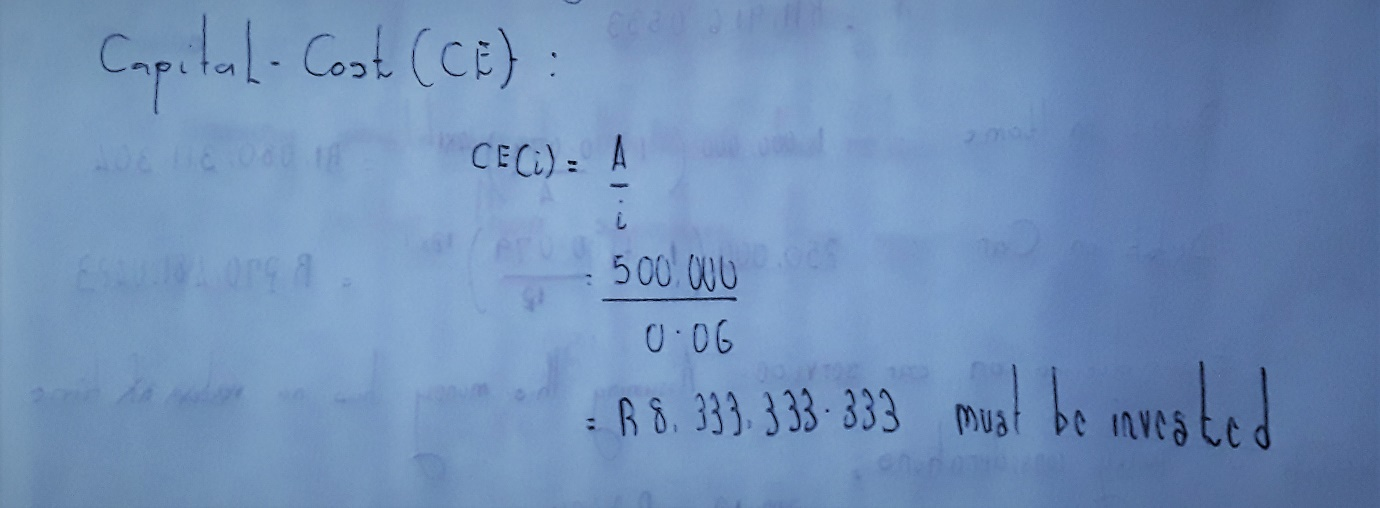 Capital - Cost (CE) :
CE(i) = A
i
= 500,000
0.06
= R 8,333,333.333 must be invested